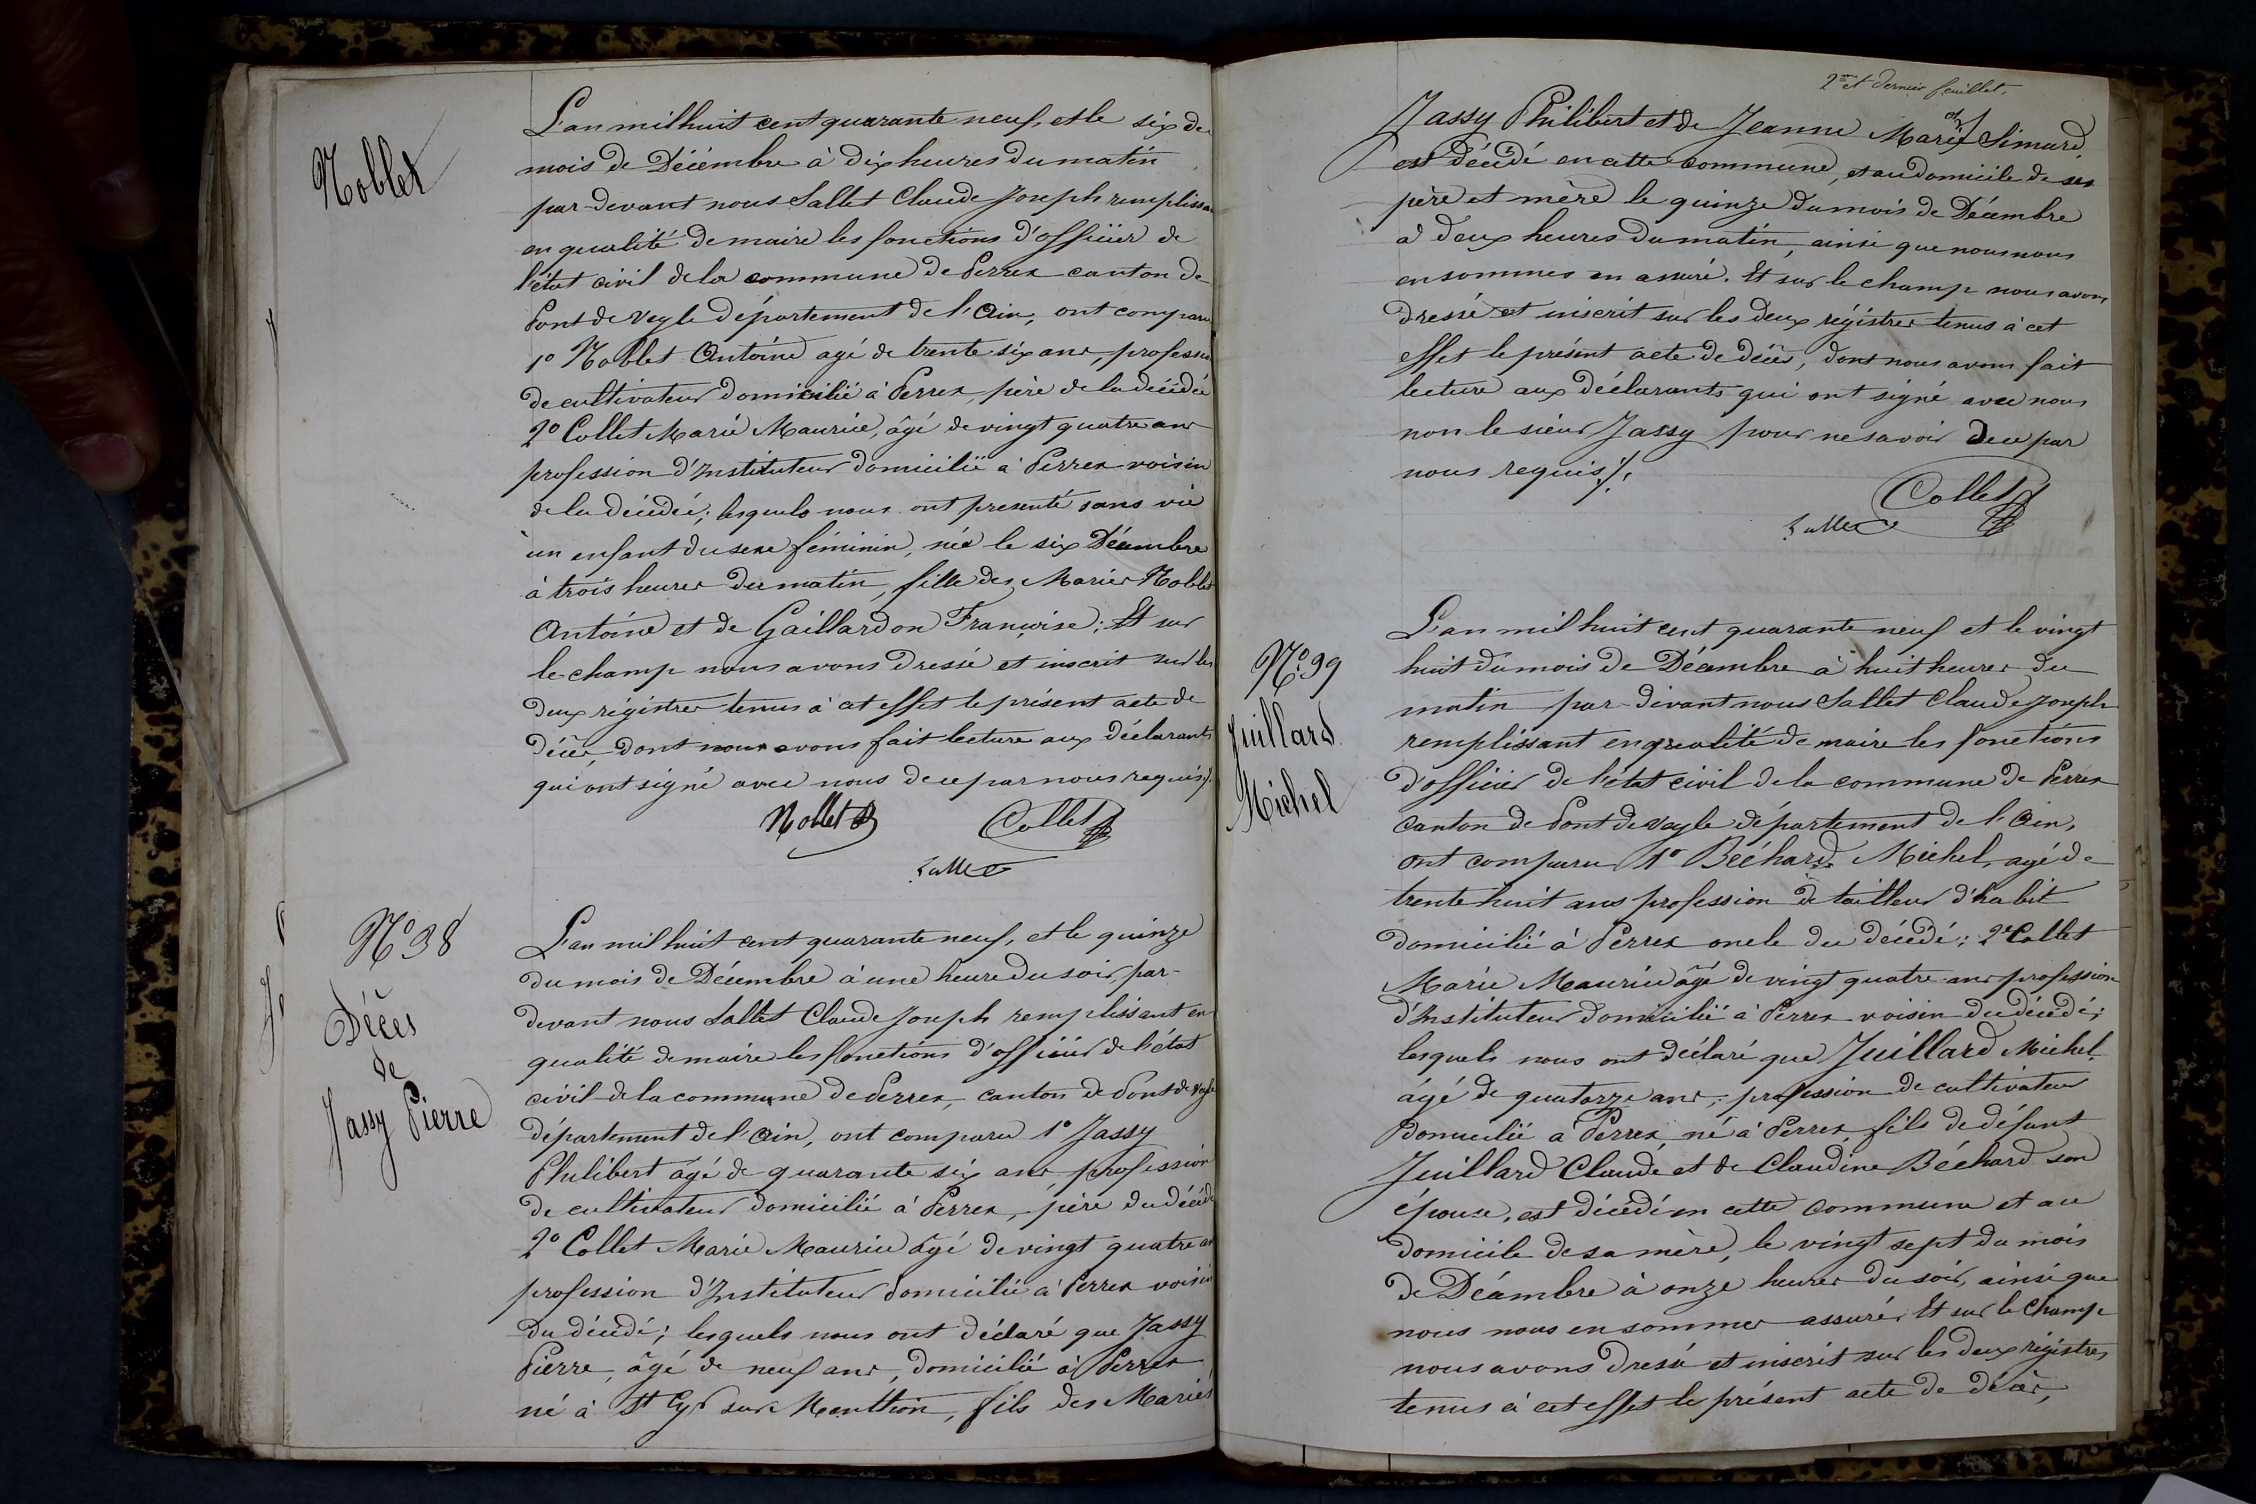 Noblet
L'an mil huit cent quarante neuf, et le six de
mois de Décembre à dix heures du matin
par-devant nous Sallet Claude Joseph remplissa
en qualité de maire les fonctions d'officier de
l'état civil de la commune de Perrex canton de
Pont de Veyle département de l'Ain, ont comparu
1º Noblet Antoine agé de trente six ans, profession
de cultivateur domicilié à Perrex, père de la décédée
2º Collet Marie Maurice, âgé de vingt quatre ans
profession d'Instituteur domicilié à Perrex voisin
de la décédée; lesquels nous ont presenté sans vie
un enfant du sexe féminin, née le six Décembre
à trois heures du matin, fille des Mariés Noblet
Antoine et de Gaillardon Françoise; Et sur
le champ nous avons dressé et inscrit sur les
deux régistres tenus à cet effet le présent acte de
décès, dont nous avons fait lecture aux déclarants
qui ont signé avec nous de ce par nous requis/.
Noblet Collet
Sallet
Nº 38
Décès
de
Jassy Pierre
L'an mil huit cent quarante neuf, et le quinze
du mois de Décembre à une heure du soir, par-
devant nous Sallet Claude Joseph remplissant en
qualité de maire les fonctions d'officier de l'état
civil de la commune de Perrex, canton de Pont de Veyle
département de l'Ain, ont comparu 1º Jassy
Philibert âgé de quarante six ans, profession
de cultivateur domicilié à Perrex, père du décédé
2º Collet Marie Maurice âgé de vingt quatre an
profession d'Instituteur domicilié à Perrex voisin
du décédé; lesquels nous ont déclaré que Jassy
Pierre, âgé de neuf ans, domicilié à Perrex
né à St Cyr sur Menthon, fils des Mariés
2me et dernier feuillet.
Jassy Philibert et de Jeanne Marie Simard
est décédé en cette commune, et au domicile de ses
père et mère le quinze du mois de Décembre
à deux heures du matin, ainsi que nous nous
en sommes en assuré. Et sur le champ nous avons
dressé et inscrit sur les deux régistres tenus à cet
effet le présent acte de décès, dont nous avons fait
lecture aux déclarants qui ont signé avec nous
non le sieur Jassy pour ne savoir de ce par
nous requis/.
Collet
Sallet
Nº 39
Juillard
Michel
L'an mil huit cent quarante neuf et le vingt
huit du mois de Décembre à huit heures du
matin par-devant nous Sallet Claude Joseph
remplissant en qualité de maire les fonctions
d'officier de l'état civil de la commune de Perrex
canton de Pont de Veyle département de l'Ain,
ont comparu 1º Béchard Michel, agé de
trente huit ans profession de tailleur d'habit
domicilié à Perrex oncle du décédé; 2º Collet
Marie Maurice âgé de vingt quatre ans profession
d'Instituteur domicilié à Perrex voisin du décédé;
lesquels nous ont déclaré que Juillard Michel
âgé de quatorze ans, profession de cultivateur
domicilié à Perrex, né à Perrex, fils de défunt
Juillard Claude et de Claudine Béchard son
épouse, est décédé en cette commune et au
domicile de sa mère, le vingt sept du mois
de Décembre à onze heures du soir, ainsi que
nous nous en sommes assuré. Et sur le champ
nous avons dressé et inscrit sur les deux régistres
tenus à cet effet le présent acte de décès,